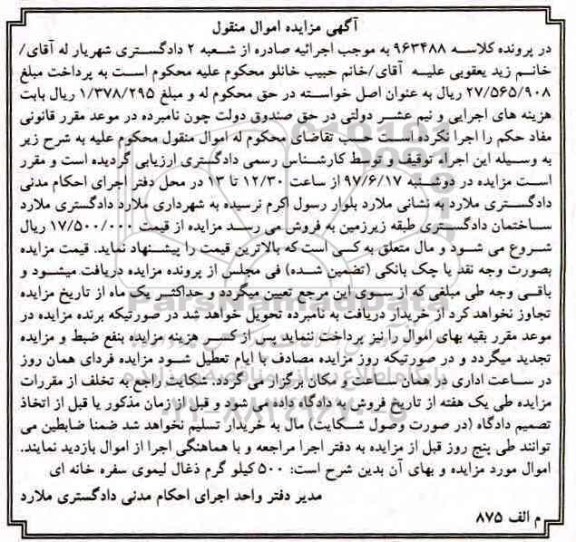 آگهی مزایده اموال منقول
در پرونده کلاسه ۹۶۳۴۸۸ به موجب اجرائیه صادره از شعبه ۲ دادگستری شهریار له آقای/
خانم زید یعقوبی علیه آقای/خانم حبیب خانلو محکوم علیه محکوم است به پرداخت مبلغ
۲۷/۵۶۵/۹۰۸ ریال به عنوان اصل خواسته در حق محکوم له و مبلغ ۱/۳۷۸/۲۹۵ ریال بابت
هزینه های اجرایی و نیم عشر دولتی در حق صندوق دولت چون نامبرده در موعد مقرر قانونی
مفاد حکم را اجرا نکرده است حسب تقاضای محکوم له اموال منقول محکوم علیه به شرح زیر
به وسیله این اجراء توقیف و توسط کارشناس رسمی دادگستری ارزیابی گردیده است و مقرر
است مزایده در دوشنبه ۹۷/۶/۱۷ از ساعت ۱۲/۳۰ تا ۱۳ در محل دفتر اجرای احکام مدنی
دادگستری ملارد به نشانی ملارد بلوار رسول اکرم نرسیده به شهرداری ملارد دادگستری ملارد
ساختمان دادگستری طبقه زیرزمین به فروش می رسد مزایده از قیمت ۱۷/۵۰۰/۰۰۰ ریال
شروع می شود و مال متعلق به کسی است که بالاترین قیمت را پیشنهاد نماید. قیمت مزایده
بصورت وجه نقد یا چک بانکی (تضمین شده) فی مجلس از پرونده مزایده دریافت میشود و
باقی وجه طی مبلغی که از سوی این مرجع تعیین میگردد و حداکثر یک ماه از تاریخ مزایده
تجاوز نخواهد کرد از خریدار دریافت به نامبرده تحویل خواهد شد در صورتیکه برنده مزایده در
موعد مقرر بقیه بهای اموال را نیز پرداخت ننماید پس از کسر هزینه مزایده بنفع ضبط و مزایده
تجدید میگردد و در صورتیکه روز مزایده مصادف با ایام تعطیل شود مزایده فردای همان روز
در ساعت اداری در همان ساعت و مکان برگزار می گردد. شکایت راجع به تخلف از مقررات
مزایده طی یک هفته از تاریخ فروش به دادگاه داده می شود و قبل از زمان مذکور یا قبل از اتخاذ
تصمیم دادگاه (در صورت وصول شکایت) مال به خریدار تسلیم نخواهد شد ضمنا ضابطین می
توانند طی پنج روز قبل از مزایده به دفتر اجرا مراجعه و با هماهنگی اجرا از اموال بازدید نمایند.
اموال مورد مزایده و بهای آن بدین شرح است: ۵۰۰ کیلو گرم ذغال لیموی سفره خانه ای
مدیر دفتر واحد اجرای احکام مدنی دادگستری ملارد
م الف ۸۷۵